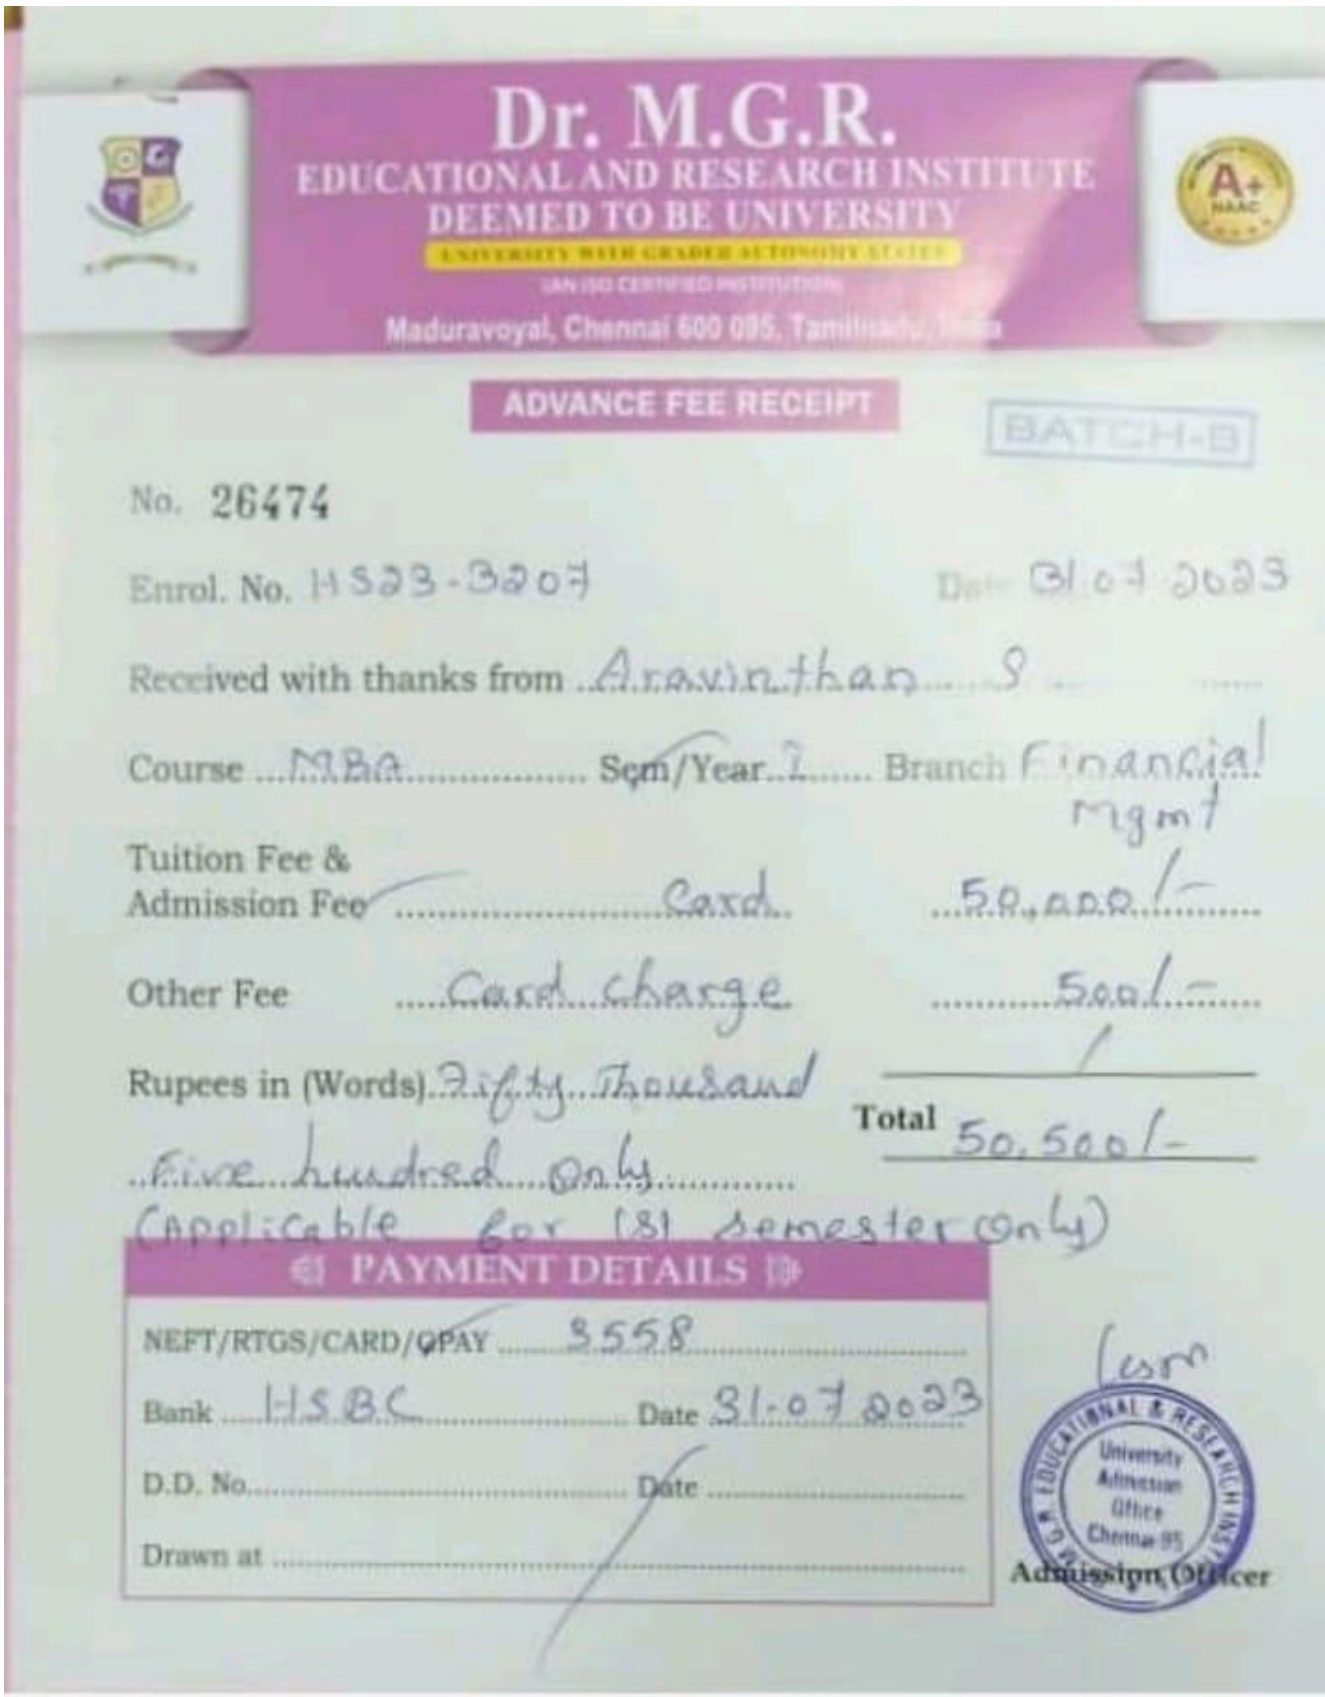 Dr. M.G.R.
EDUCATIONAL AND RESEARCH INSTITUTE
DEEMED TO BE UNIVERSITY
UNIVERSITY WITH GRADED AUTONOMY STATUS
(AN ISO CERTIFIED INSTITUTION)
Maduravoyal, Chennai 600 095, Tamilnadu, India
A+
NAAC
ADVANCE FEE RECEIPT
BATCH-B
No. 26474
Enrol. No. HS23-3207 Date 31.07.2023
Received with thanks from Aravinthan S
Course MBA Sem/Year I Branch Financial
Mgmt
Tuition Fee &
Admission Fee Card 50,000/-
Other Fee Card charge 500/-
Rupees in (Words) Fifty Thousand
Total 50,500/-
Five hundred only
(Applicable for ISt semester only)
PAYMENT DETAILS
NEFT/RTGS/CARD/GPAY 3558
Bank HSBC Date 31.07.2023
D.D. No. Date
Drawn at
M.G.R. EDUCATIONAL & RESEARCH
University
Admission
Office
Chennai-95
Admission Officer